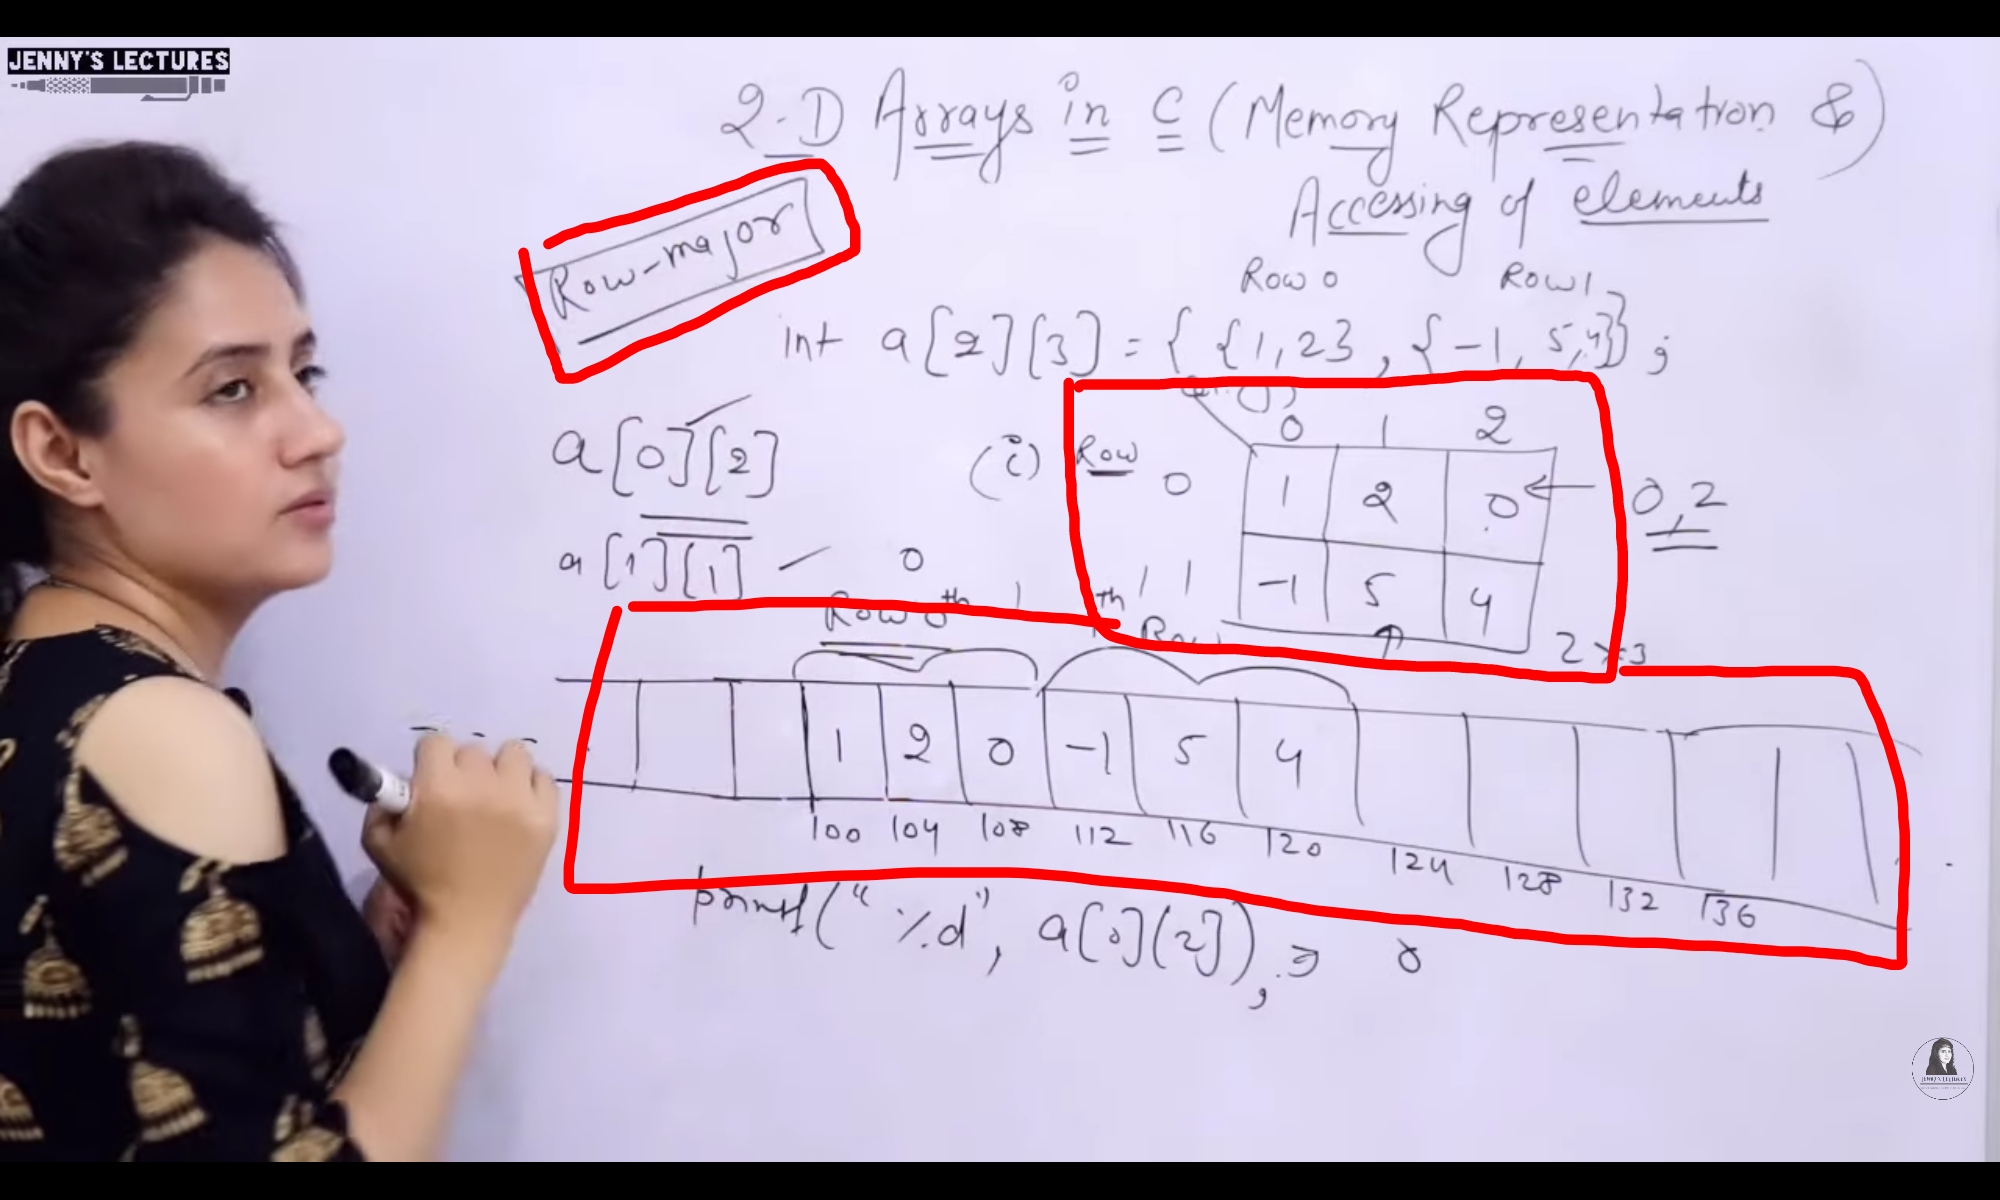 JENNY'S LECTURES
2-D Arrays in C (Memory Representation &
Accessing of elements)
Row-major
Row 0 Row 1
int a[2][3] = { {1,2}, {-1, 5,4}};
a[0][2]
a[1][1]
(i) Row
0 1 2
0 1 2 0
1 -1 5 4
0,2
2×3
0 1
Row 0th
1 2 0 -1 5 4
100 104 108 112 116 120 124 128 132 136
printf("%d", a[0][2]); ⇒ 0